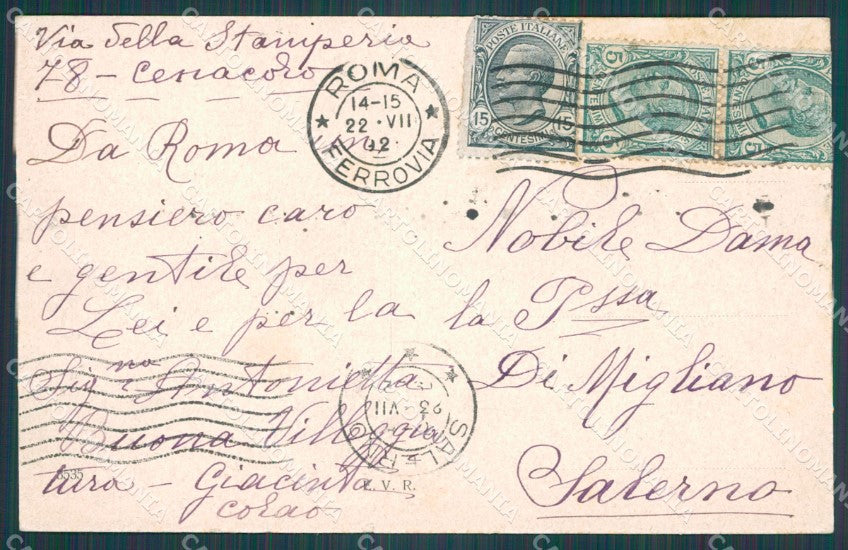 Via della Stamperia
78 -
Da Roma un
pensiero caro
e gentile per
Lei e per la
Sig.na Antonietta
Buona Villeggia
tura - Giacinta
ROMA
14-15
22 VII
12
FERROVIA
POSTE ITALIANE
15 CENTESIMI 15
5
5
Nobile Dama
la Pssa
Di Migliano
Salerno
SALERNO
23 VII
8535
E. V. R.
CARTOLINOMANIA